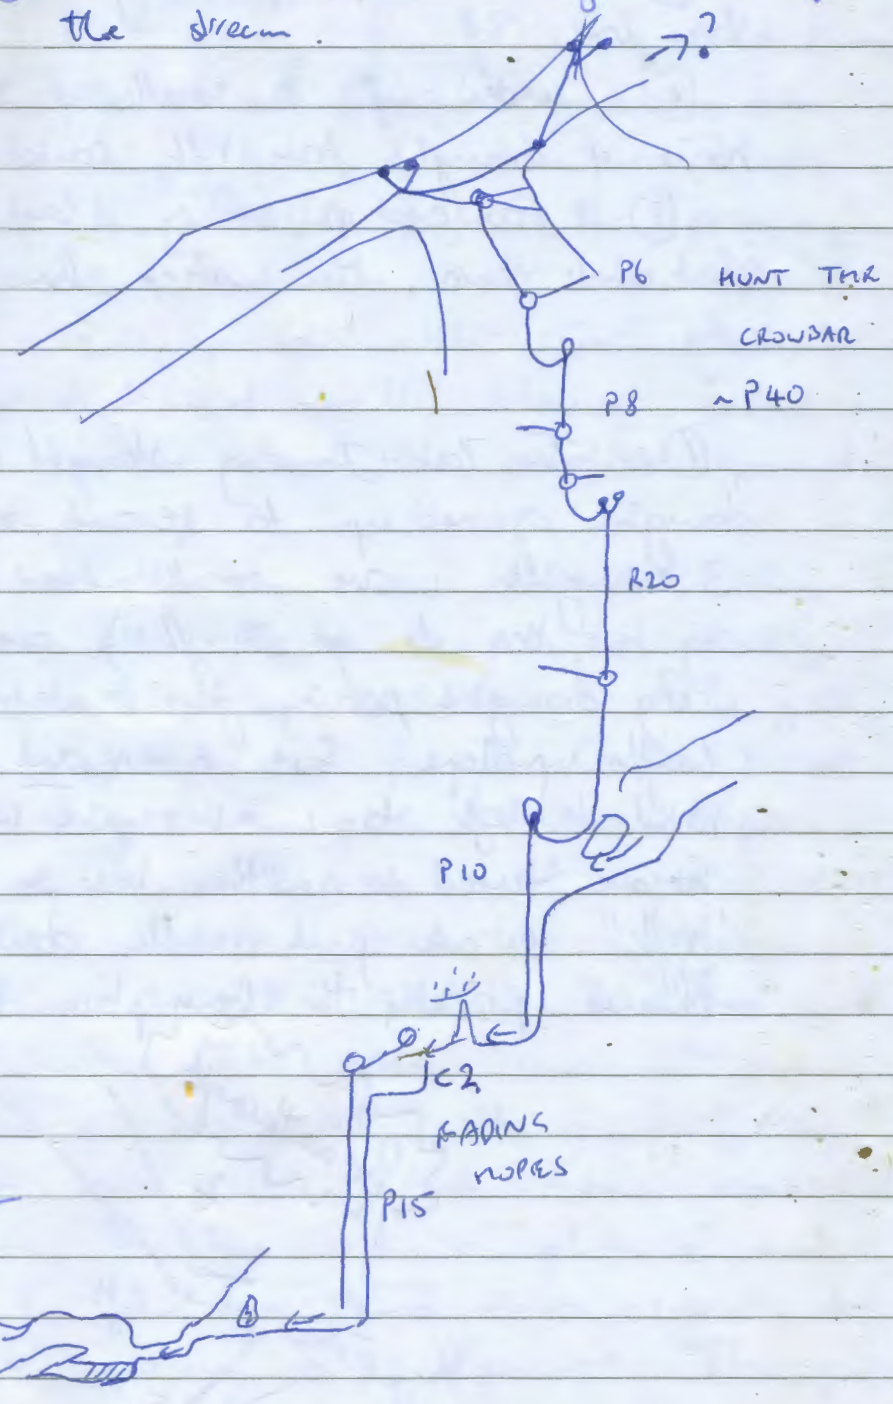 the stream.
→?
P6 HUNT THE
CROWBAR
P8 ~P40
P20
P10
C2
FADING
HOPES
P15